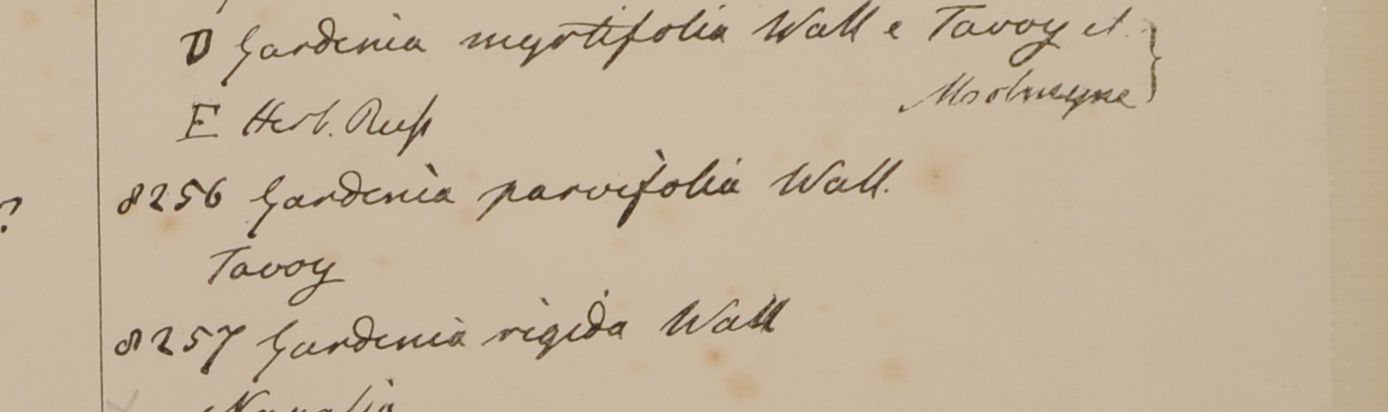 D Gardenia myrtifolia Wall e Tavoy et
Molmeyne
E Herb. Russ
8256 Gardenia parvifolia Wall.
Tavoy
8257 Gardenia rigida Wall
?